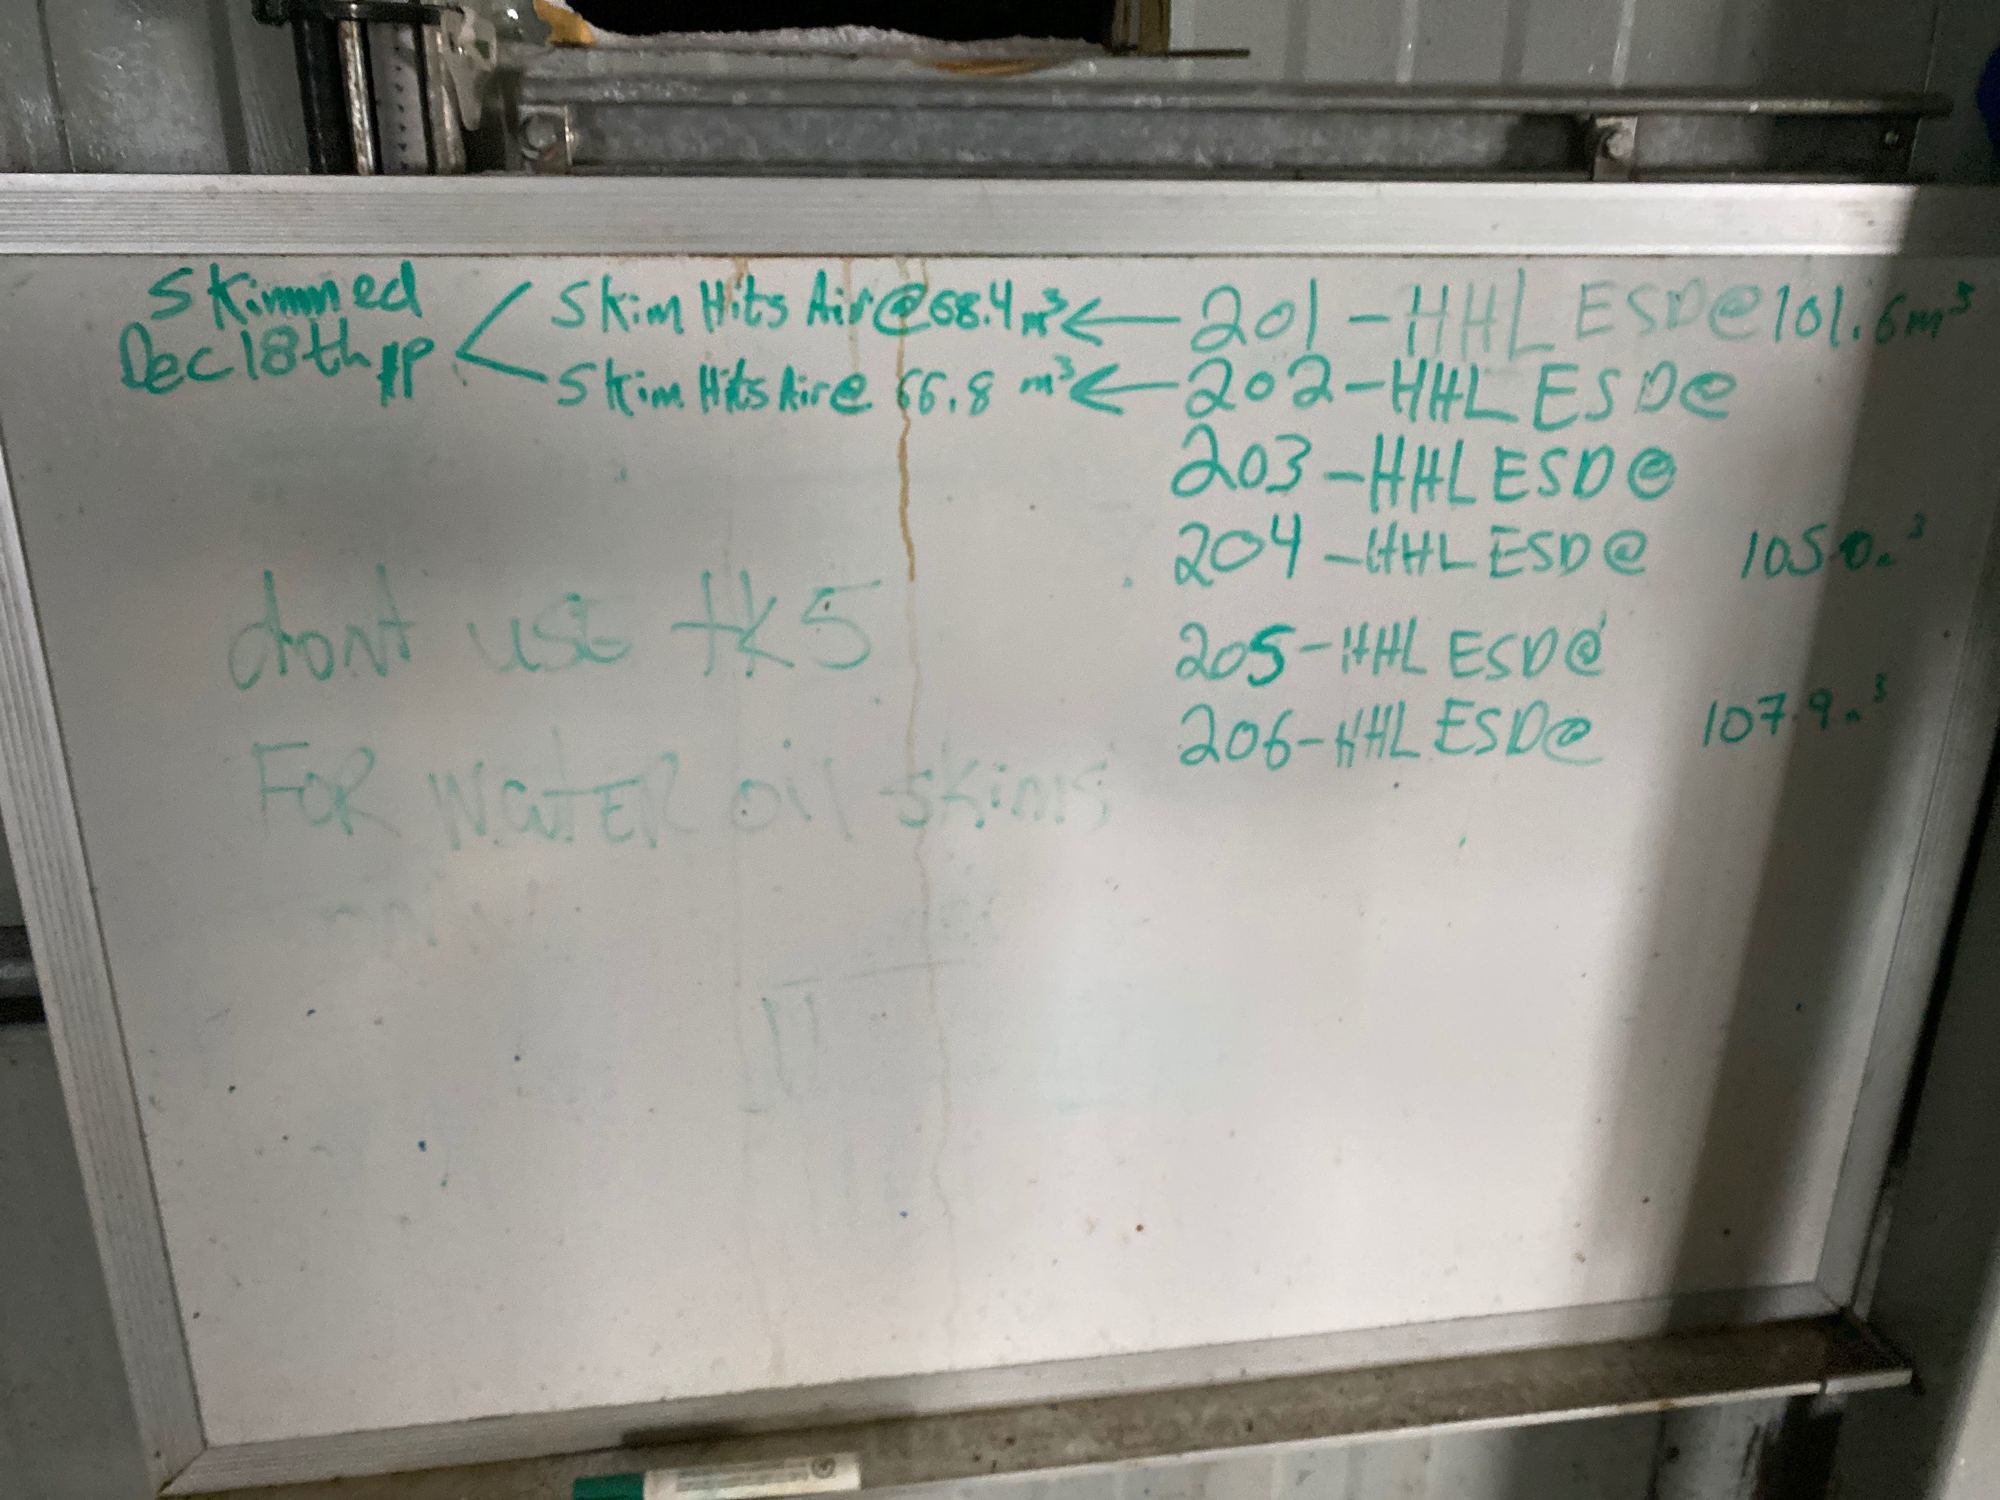 Skimmed
Dec 18th
Skim Hits Air @ 68.4 m³ ← 201 - HHL ESD @ 101.6m³
Skim Hits Air @ 66.8 m³ ← 202 - HHL ESD @
203 - HHL ESD @
204 - HHL ESD @
205 - HHL ESD @
206 - HHL ESD @ 107.9
dont use tk5
FOR WatER oil skims